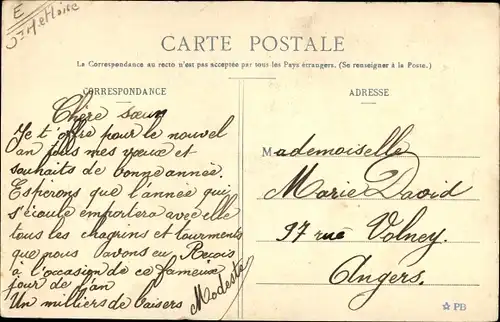 E
CARTE POSTALE
La Correspondance au recto n'est pas acceptée par tous les Pays étrangers. (Se renseigner à la Poste.)
CORRESPONDANCE
Chère sœur
Je t'offre pour le nouvel
an tous mes vœux et
souhaits de bonne année.
Esperons que l'année qui
s'écoule emportera avec elle
tous les chagrins et tourments
que nous avons eu Reçois
à l'occasion de ce fameux
jour de l'an
Un milliers de baisers
Modeste
ADRESSE
Mademoiselle
Marie David
97 rue Volney.
Angers.
☆ PB